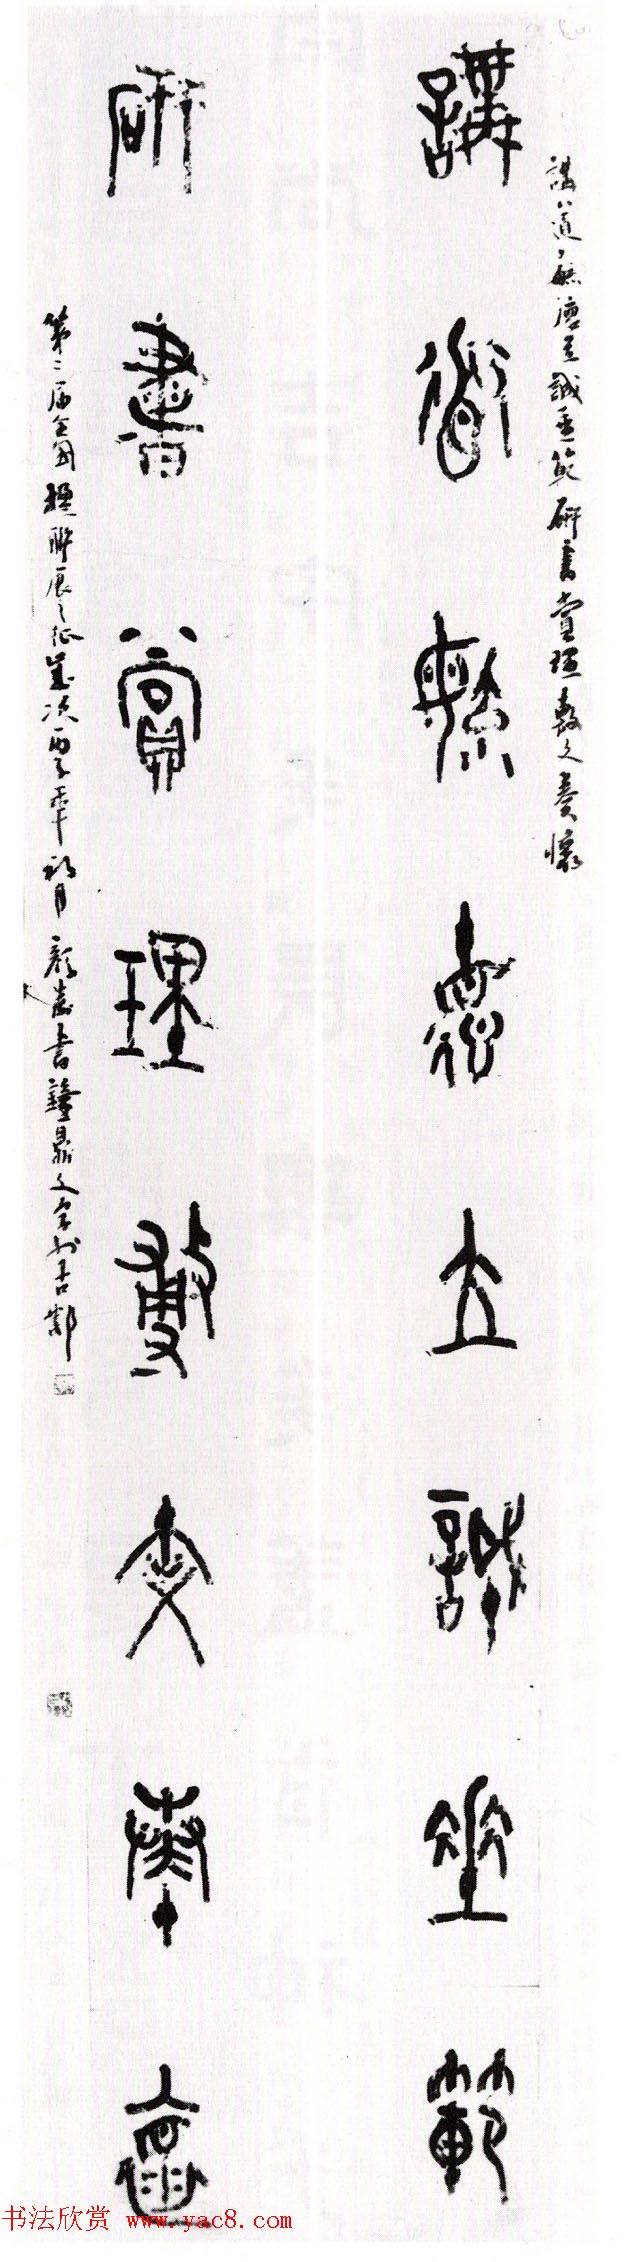 講道懋德立誠垂範
研書賞理敷文奏懷
講道懋德立誠垂範研書賞理敷文奏懷
第二届全國楹聯展之征歲次丙子年初月
書鐘鼎文字於古鄒
书法欣赏 www.yac8.com